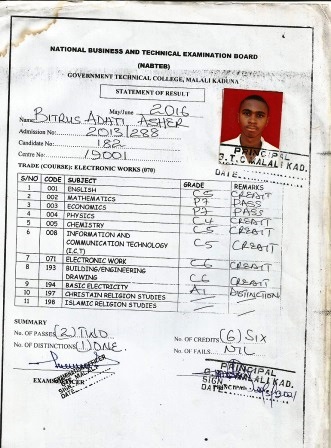 NATIONAL BUSINESS AND TECHNICAL EXAMINATION BOARD
(NABTEB)
GOVERNMENT TECHNICAL COLLEGE, MALALI KADUNA
STATEMENT OF RESULT
May/June 2016
Name: BITRUS ADATI ASHER
Admission No: 2013/288
Candidate No: 182
Centre No: 19001
PRINCIPAL
G.T.C MALALI KAD.
DATE
TRADE (COURSE): ELECTRONIC WORKS (070)
S/NO CODE SUBJECT GRADE REMARKS
1 001 ENGLISH C5 CREDIT
2 002 MATHEMATICS P7 PASS
3 003 ECONOMICS P7 PASS
4 004 PHYSICS C4 CREDIT
5 005 CHEMISTRY C5 CREDIT
6 008 INFORMATION AND COMMUNICATION TECHNOLOGY (I.C.T) C5 CREDIT
7 071 ELECTRONIC WORK C6 CREDIT
8 193 BUILDING/ENGINEERING DRAWING C6 CREDIT
9 194 BASIC ELECTRICITY A1 DISTINCTION
10 197 CHRISTAIN RELIGION STUDIES
11 198 ISLAMIC RELIGION STUDIES
SUMMARY
No. OF PASSES (2) TWO No. OF CREDITS (6) SIX
No. OF DISTINCTIONS (1) ONE No. OF FAILS NIL
EXAMS OFFICER
PRINCIPAL
MALALI KAD.
SIGN
DATE